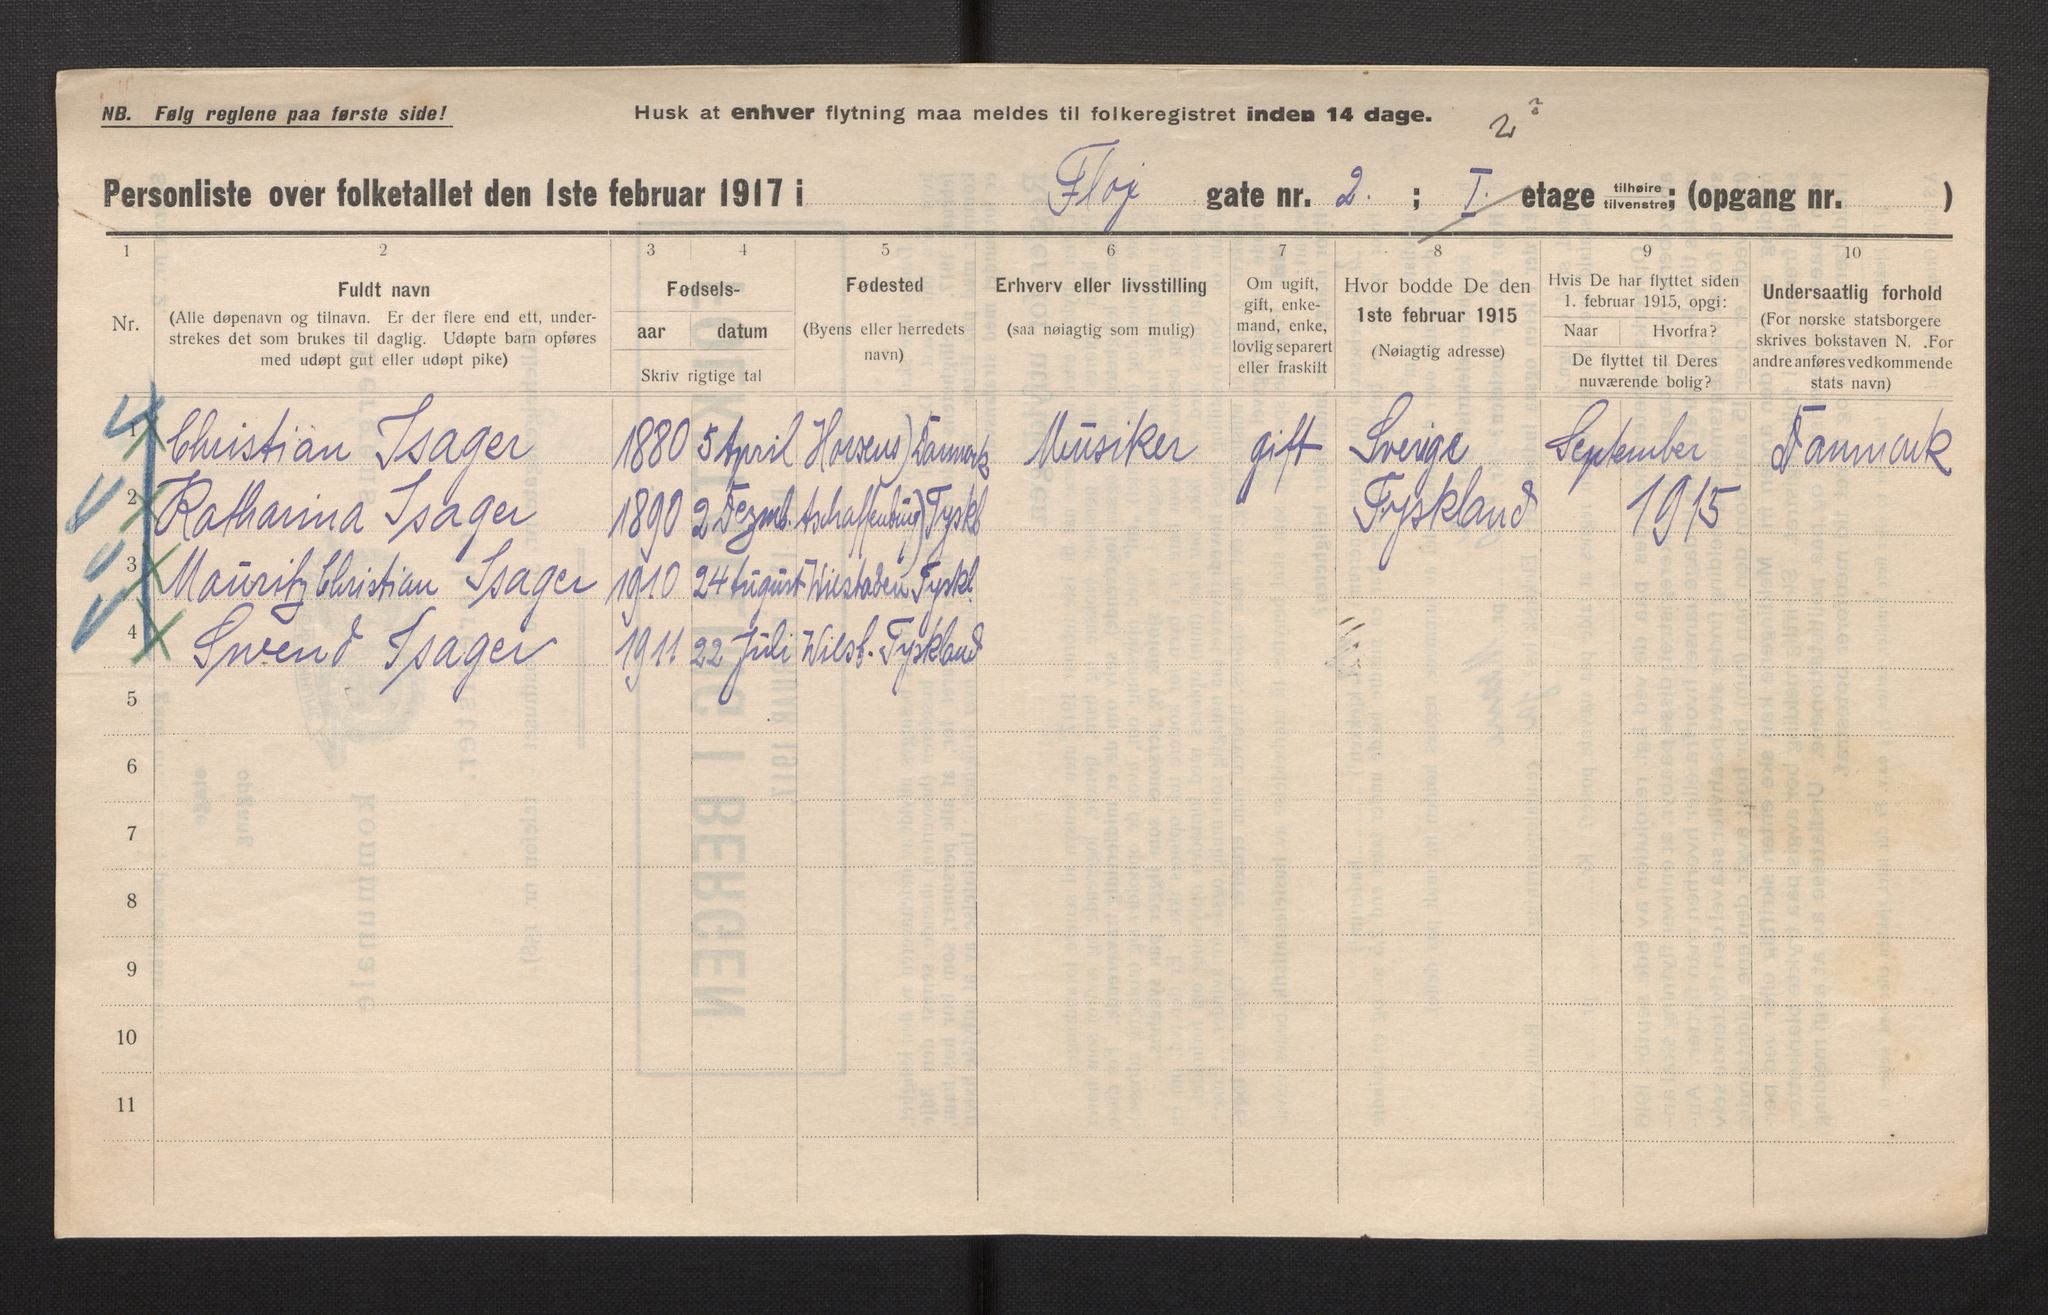 NB. Følg reglene paa første side! Husk at enhver flytning maa meldes til folkeregistret inden 14 dage. 2?
Personliste over folketallet den 1ste februar 1917 i Fløj gate nr. 2. ; I. etage tilhøire tilvenstre; (opgang nr. )
1 2 3 4 5 6 7 8 9 10
Nr.
Fuldt navn
(Alle døpenavn og tilnavn. Er der flere end ett, under-
strekes det som brukes til daglig. Udøpte barn opføres
med udøpt gut eller udøpt pike)
Fødsels-
aar datum
Skriv rigtige tal
Fødested
(Byens eller herredets
navn)
Erhverv eller livsstilling
(saa nøiagtig som mulig)
Om ugift,
gift, enke-
mand, enke,
lovlig separert
eller fraskilt
Hvor bodde De den
1ste februar 1915
(Nøiagtig adresse)
Hvis De har flyttet siden
1. februar 1915, opgi:
Naar Hvorfra?
De flyttet til Deres
nuværende bolig?
Undersaatlig forhold
(For norske statsborgere
skrives bokstaven N. .For
andre anføres vedkommende
stats navn)
1 Christian Isager 1880 5 April Horsens) Danmark Musiker gift Sverige September Danmark
2 Katharina Isager 1890 2 Dezmb. Aschaffenburg) Tyskl Tyskland 1915
3 Mauritz Christian Isager 1910 24 August Wiesbaden Tyskl.
4 Swend Isager 1911. 22 Juli Wiesb. Tyskland
5
6
7
8
9
10
11